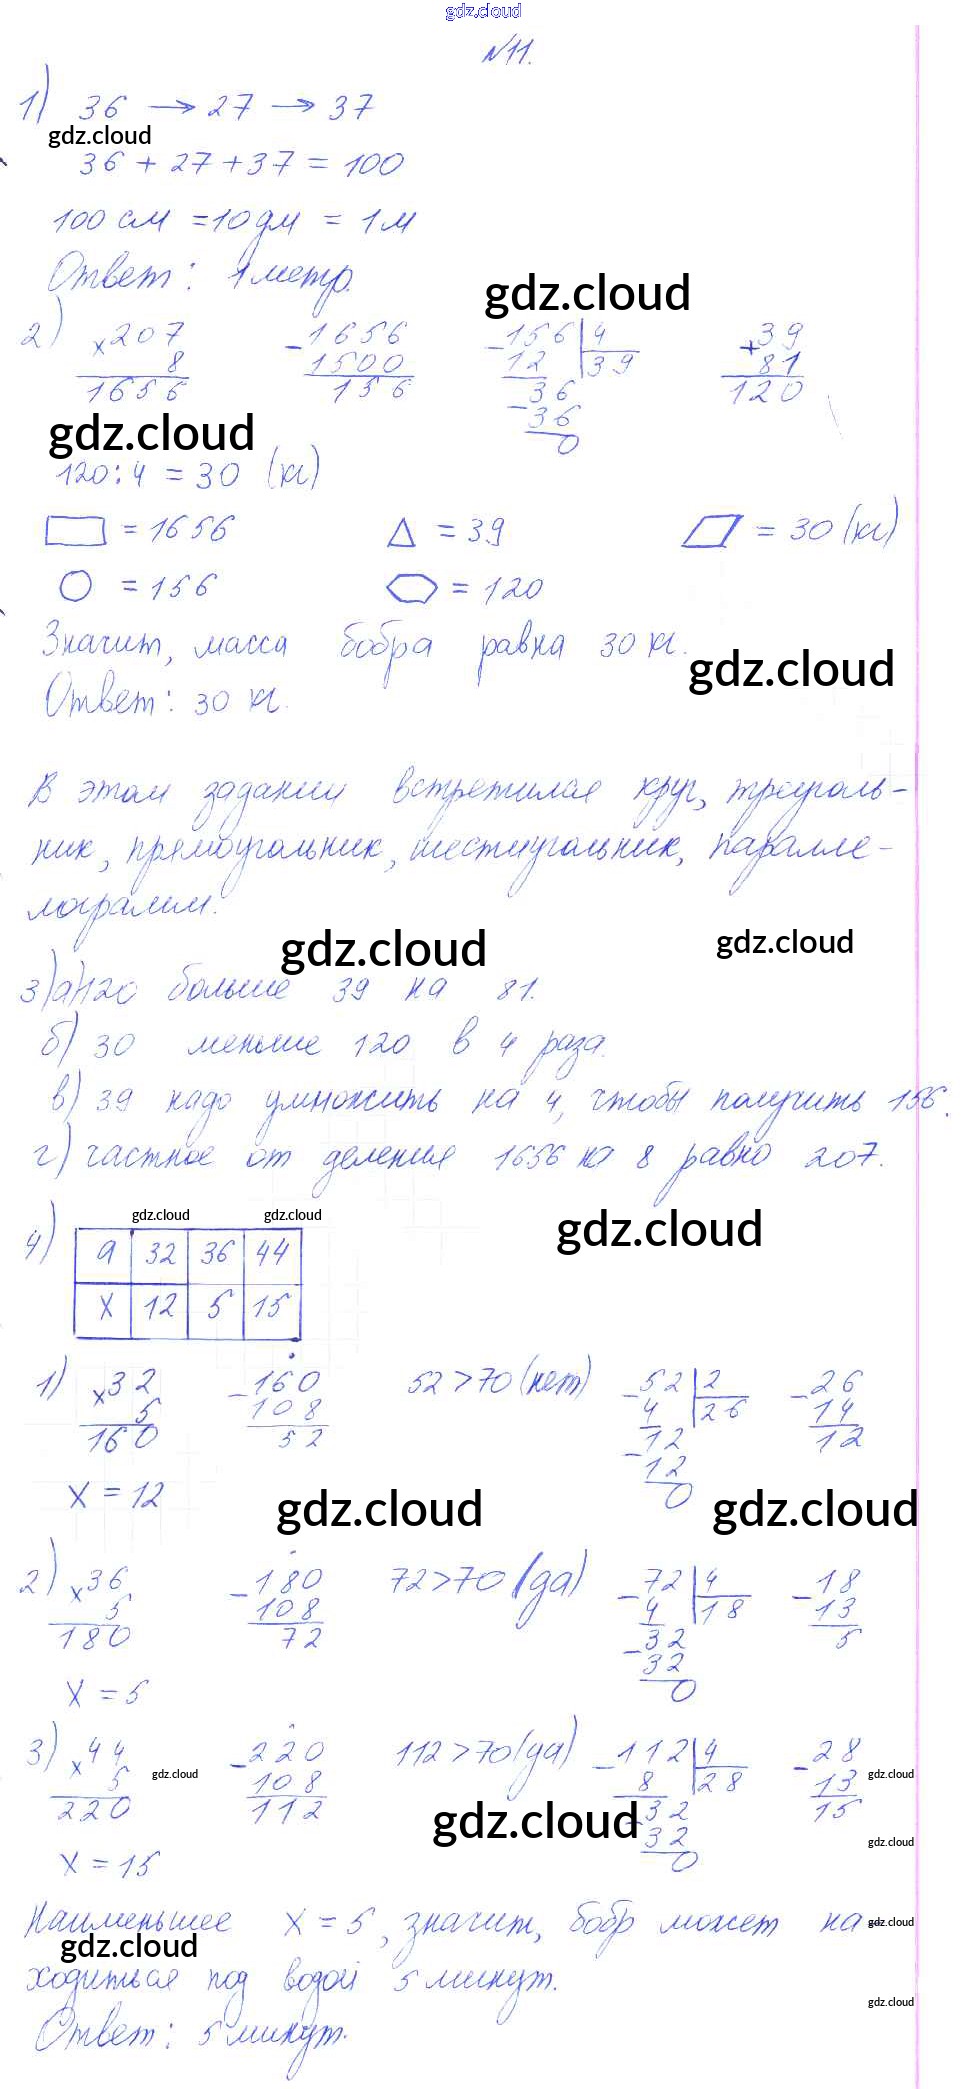 gdz.cloud
№11.
1) 36 → 27 → 37
gdz.cloud
36 + 27 + 37 = 100
100 см = 10 дм = 1 м
Ответ: 1 метр.
gdz.cloud
2) ×207 -1656 -156|4 +39
8 1500 12 |39 81
1656 156 36 120
-36
0
gdz.cloud
120:4 = 30 (кг)
= 1656 = 39 = 30 (кг)
= 156 = 120
Значит, масса бобра равна 30 кг.
gdz.cloud
Ответ: 30 кг.
В этом задании встретился круг, треуголь-
ник, прямоугольник, шестиугольник, паралле-
лограмм.
gdz.cloud gdz.cloud
3) а) 120 больше 39 на 81.
б) 30 меньше 120 в 4 раза.
в) 39 надо умножить на 4, чтобы получить 156.
г) частное от деления 1656 на 8 равно 207.
gdz.cloud gdz.cloud gdz.cloud
4) a 32 36 44
x 12 5 15
1) ×32 -160 52 > 70 (нет) -52|2 -26
5 108 4 |26 14
160 52 -12 12
12
0
x = 12
gdz.cloud gdz.cloud
2) ×36 -180 72 > 70 (да) -72|4 -18
5 108 4 |18 13
180 72 -32 5
32
0
x = 5
3) ×44 -220 112 > 70 (да) -112|4 -28
5 108 8 |28 13
220 112 -32 15
32
0
gdz.cloud gdz.cloud
gdz.cloud gdz.cloud
x = 15
Наименьшее x = 5, значит, бобр может на-
gdz.cloud gdz.cloud
ходиться под водой 5 минут.
gdz.cloud
Ответ: 5 минут.